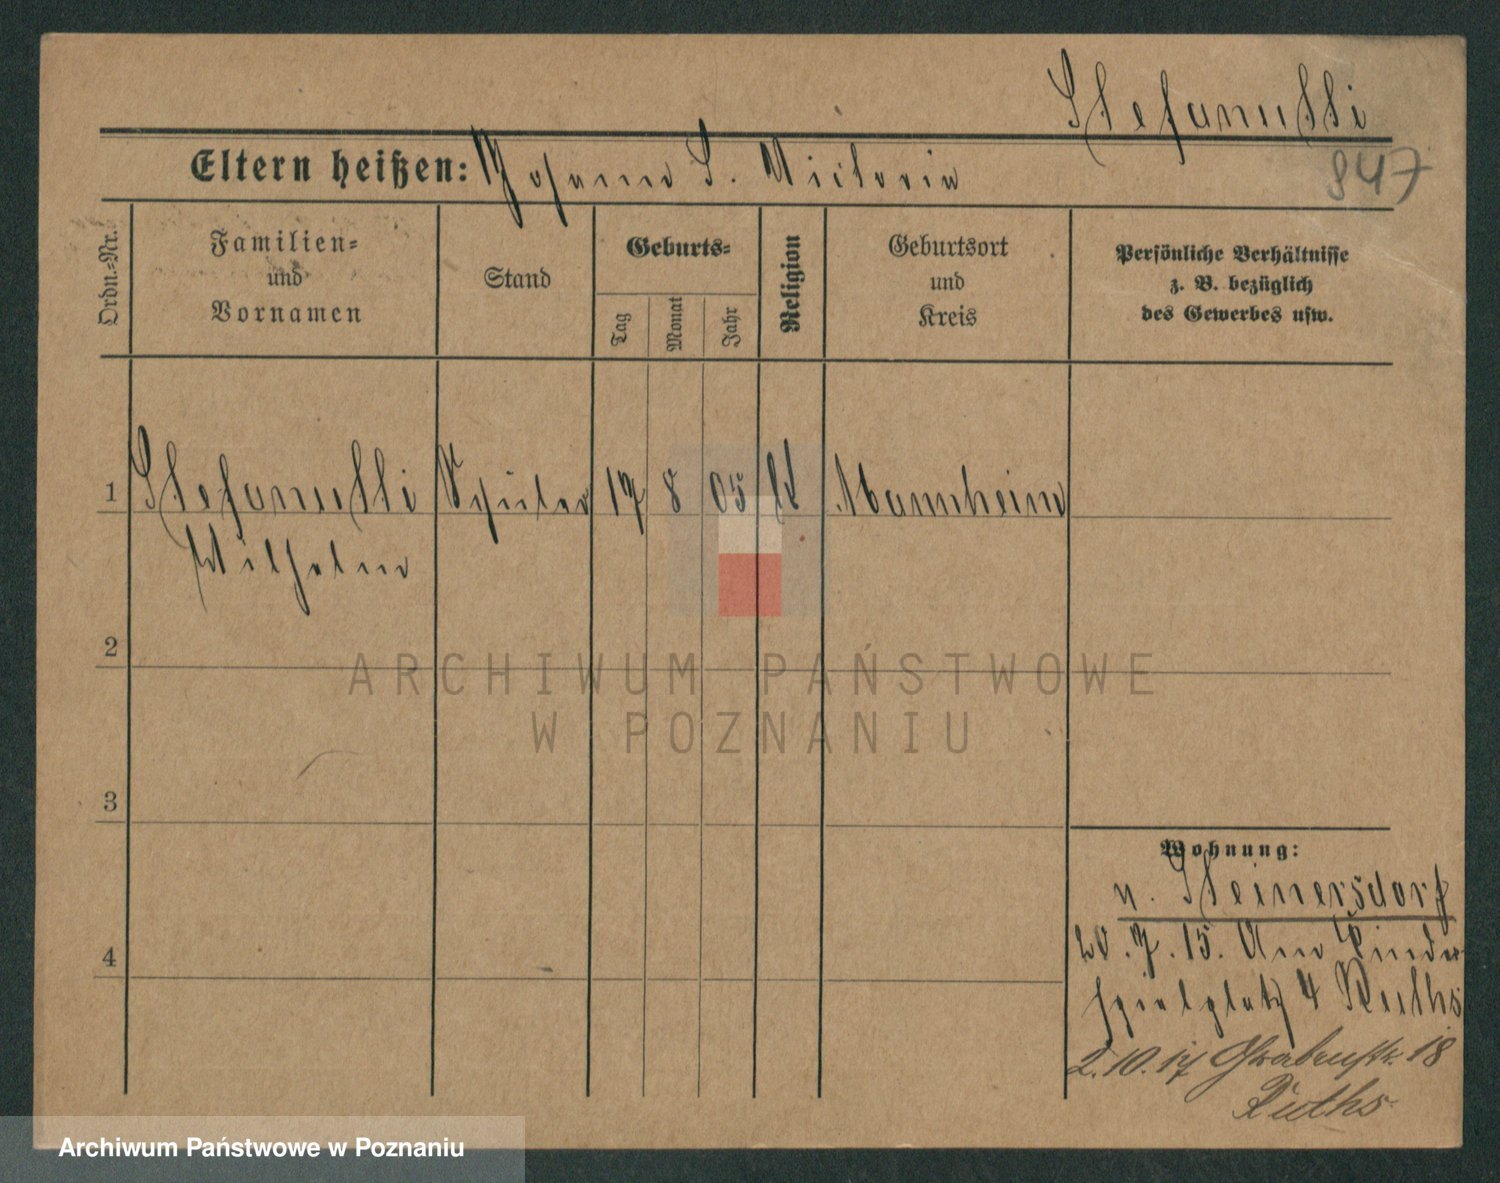 Stefanutti
947
Eltern heißen: Johann S. Victoria
Ordn.-Nr.
Familien-
und
Vornamen
Stand
Geburts-
Tag
Monat
Jahr
Religion
Geburtsort
und
Kreis
Persönliche Verhältnisse
z. B. bezüglich
des Gewerbes usw.
1 Stefanutti Schüler 17 8 05 k Mannheim
Wilhelm
2
3
4
Wohnung:
n. Steinersdorf
20. 7. 15. Am Kinder
spielplatz 4 Ruths
2. 10. 17 Grabenstr. 18
Ruths
ARCHIWUM PAŃSTWOWE
W POZNANIU
Archiwum Państwowe w Poznaniu